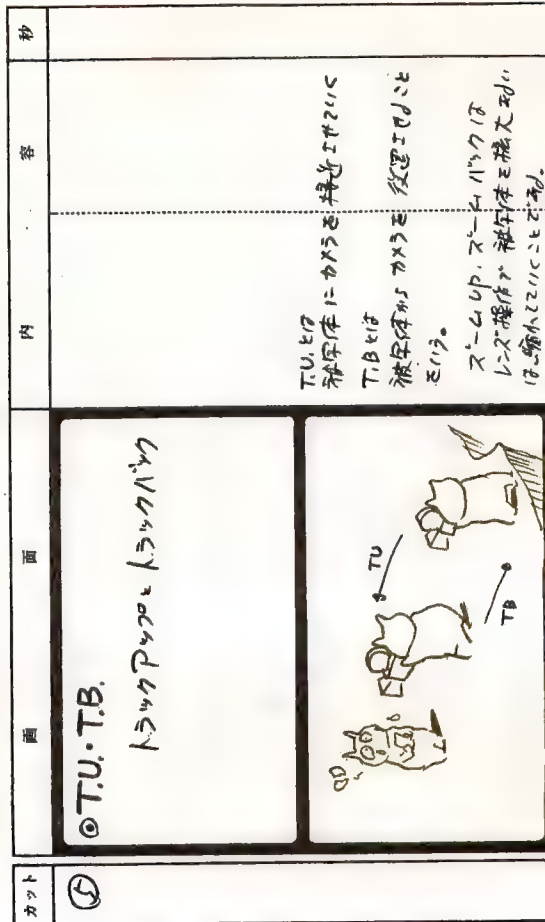 カット
画面
内容
秒
⑤
◎T.U.・T.B.
トラックアップとトラックバック
TU
TB
T.U.とは
被写体にカメラを接近させていく
T.Bとは
被写体からカメラを後退させること
をいう。
ズームUP、ズームバックは
レンズ操作で被写体を拡大あるい
は縮れていくことである。